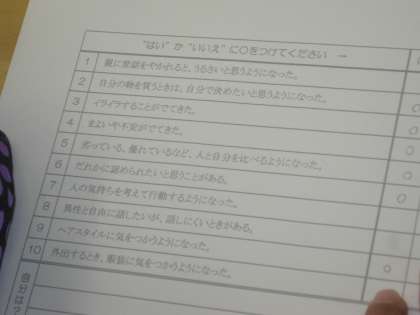 "はい"か"いいえ"に○をつけてください →
1 親に世話をやかれると、うるさいと思うようになった。
2 自分の物を買うときは、自分で決めたいと思うようになった。
3 イライラすることがでてきた。
4 まよいや不安がでてきた。
5 劣っている、優れているなど、人と自分を比べるようになった。
6 だれかに認められたいと思うことがある。
7 人の気持ちを考えて行動するようになった。
8 異性と自由に話したいが、話しにくいときがある。
9 ヘアスタイルに気をつかうようになった。
10 外出するとき、服装に気をつかうようになった。
自分は?